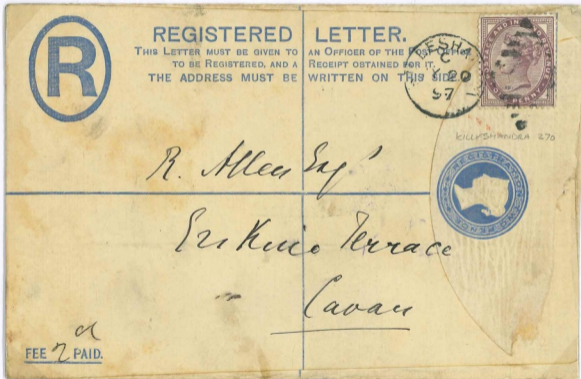 R
REGISTERED LETTER.
THIS LETTER MUST BE GIVEN TO AN OFFICER OF THE POST OFFICE
TO BE REGISTERED, AND A RECEIPT OBTAINED FOR IT.
THE ADDRESS MUST BE WRITTEN ON THIS SIDE.
C
20
97
KILLESHANDRA 270
REGISTRATION TWO PENCE
R. Allen Esqr
Erskine Terrace
Cavan
FEE 2d PAID.